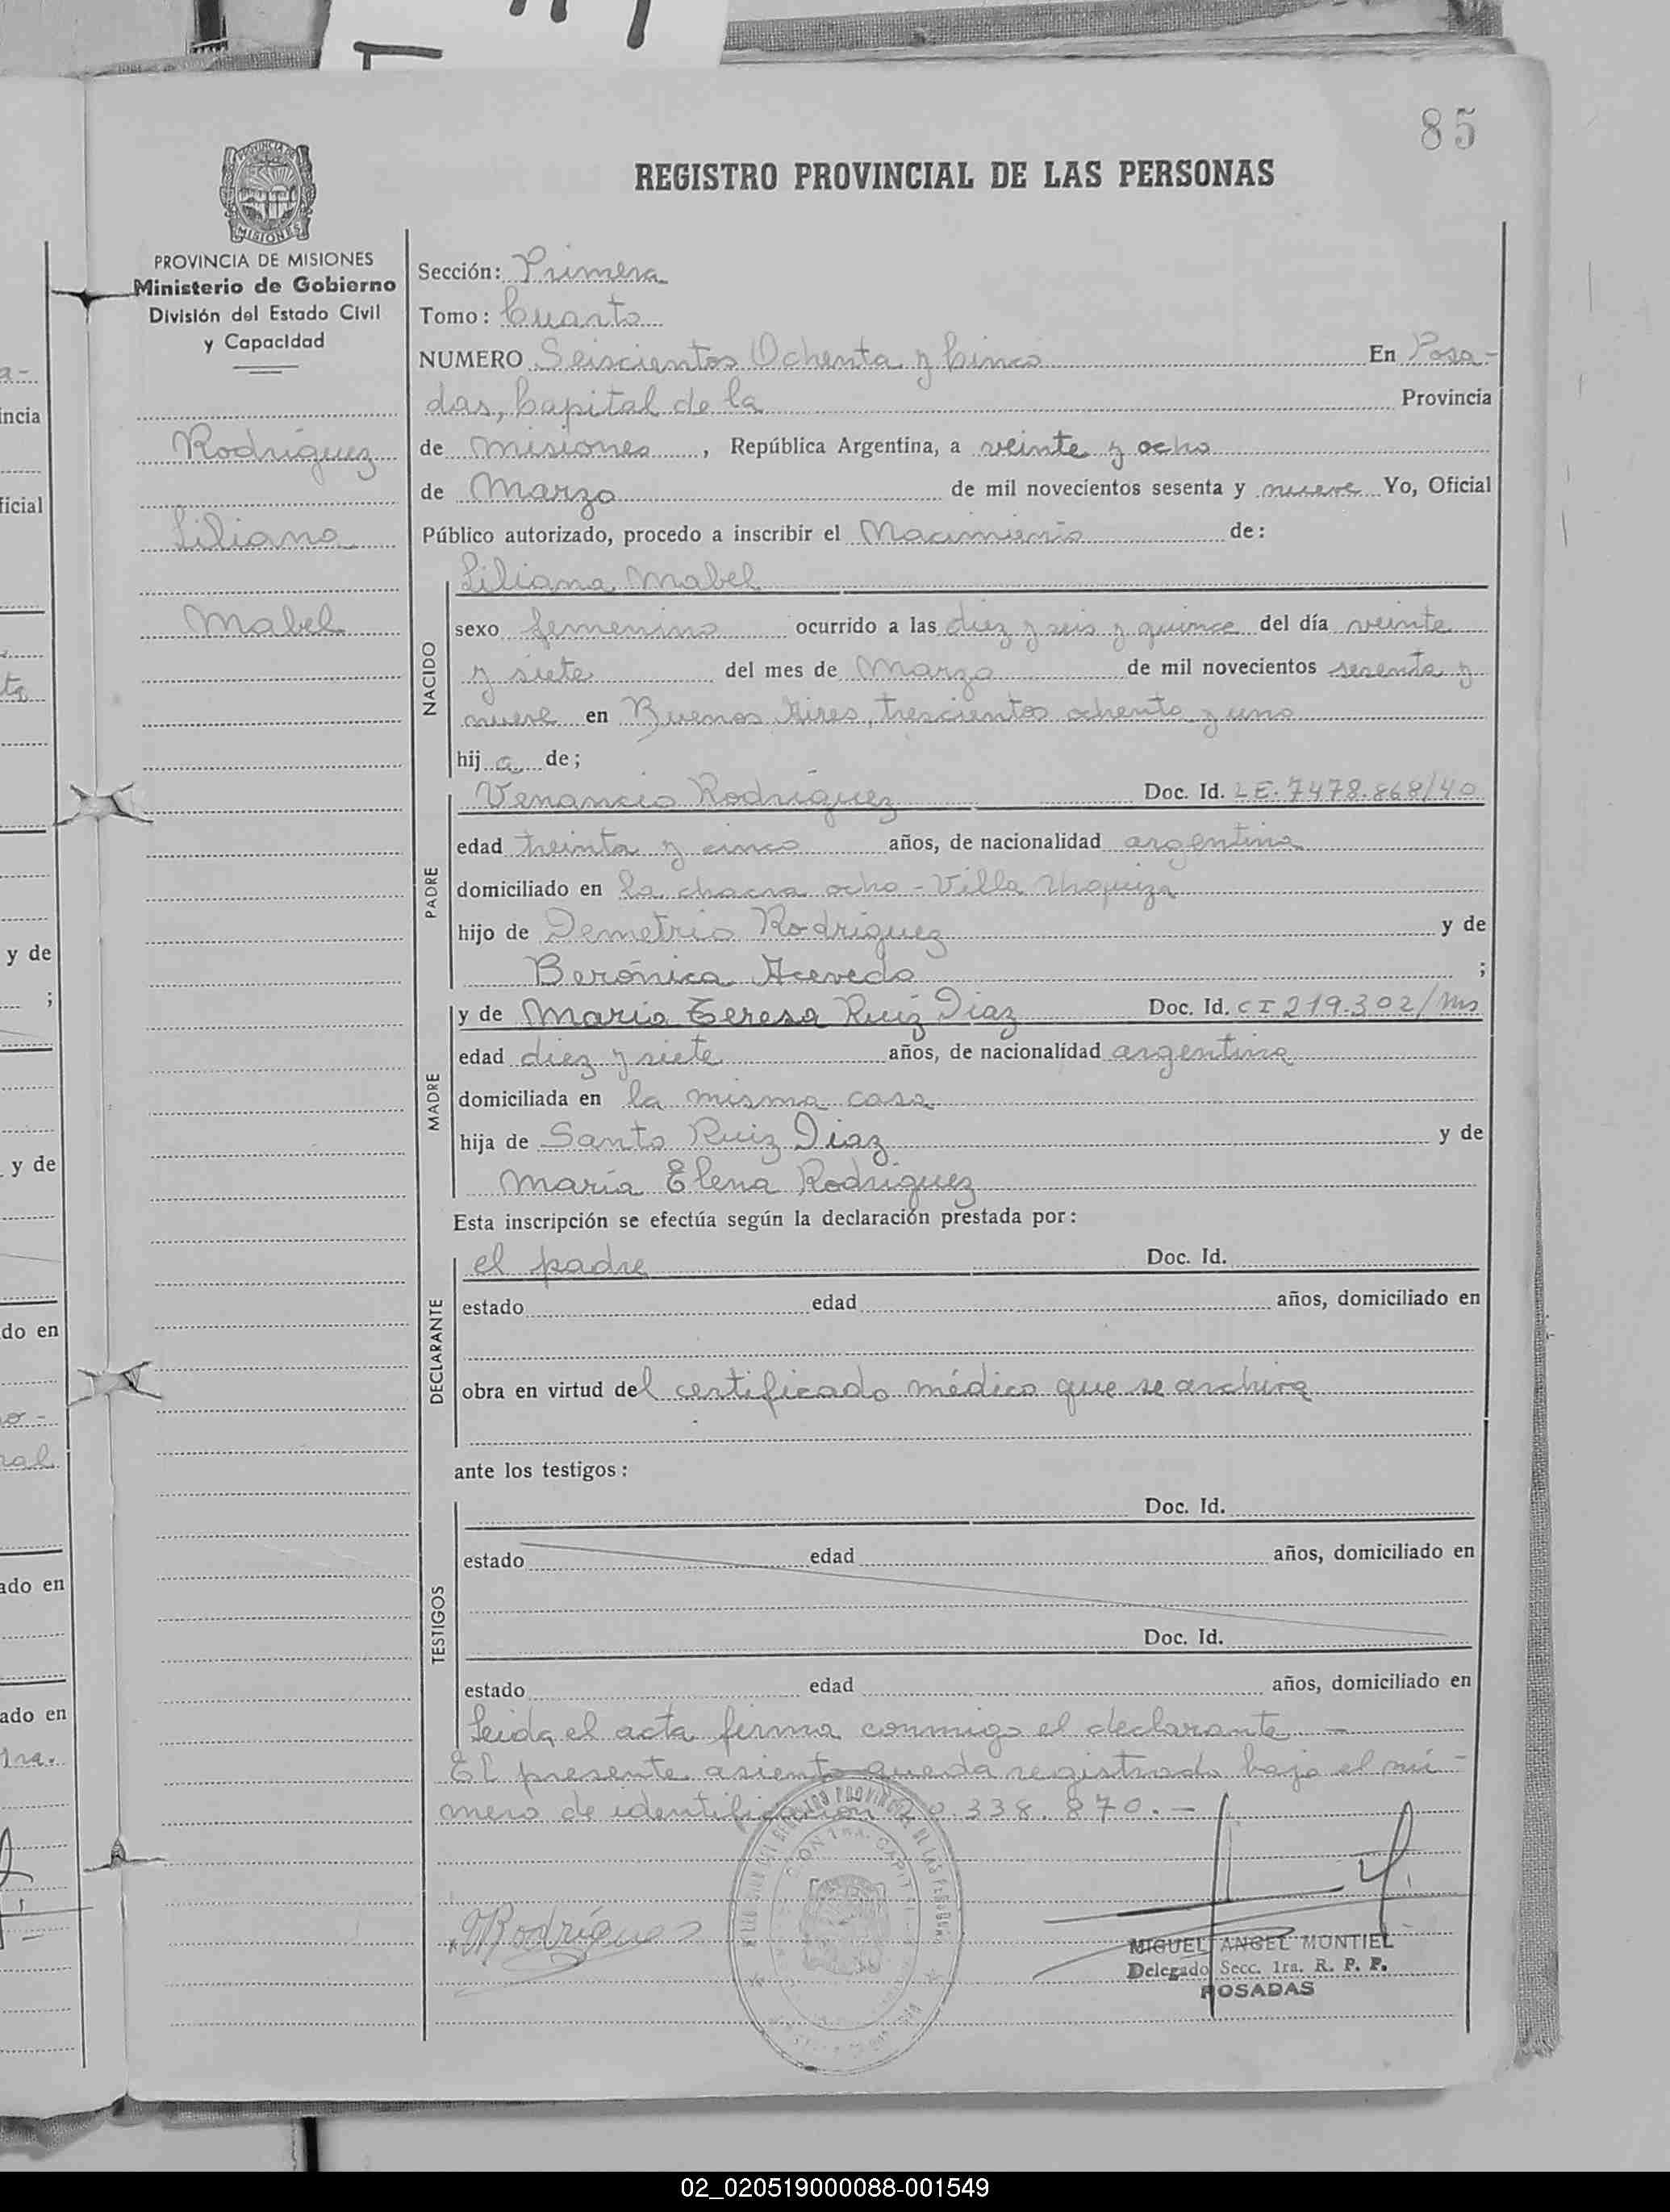 85
REGISTRO PROVINCIAL DE LAS PERSONAS
PROVINCIA DE MISIONES
Ministerio de Gobierno
División del Estado Civil
y Capacidad
Rodríguez
Liliana
Mabel
Sección: Primera
Tomo: Cuarto
NUMERO Seiscientos Ochenta y Cinco En Posa-
das, Capital de la Provincia
de Misiones, República Argentina, a veinte y ocho
de Marzo de mil novecientos sesenta y nueve Yo, Oficial
Público autorizado, procedo a inscribir el Nacimiento de:
Liliana Mabel
NACIDO
sexo femenino ocurrido a las diez y seis y quince del día veinte
y siete del mes de Marzo de mil novecientos sesenta y
nueve en Buenos Aires, trescientos ochenta y uno
hij a de;
PADRE
Venancio Rodríguez Doc. Id. LE. 7478.868/40
edad treinta y cinco años, de nacionalidad argentina
domiciliado en la chacra ocho - Villa Urquiza
hijo de Demetrio Rodríguez y de
Berónica Acevedo ;
MADRE
y de María Teresa Ruiz Diaz Doc. Id. CI 219.302/Ms
edad diez y siete años, de nacionalidad argentina
domiciliada en la misma casa
hija de Santo Ruiz Diaz y de
María Elena Rodríguez
Esta inscripción se efectúa según la declaración prestada por:
DECLARANTE
el padre Doc. Id.
estado edad años, domiciliado en
obra en virtud del certificado médico que se archiva
ante los testigos:
TESTIGOS
Doc. Id.
estado edad años, domiciliado en
Doc. Id.
estado edad años, domiciliado en
Leida el acta firma conmigo el declarante -
El presente asiento queda registrado bajo el nú-
mero de identificación 20.338.870.-
Rodríguez
MIGUEL ANGEL MONTIEL
Delegado Secc. 1ra. R. P. P.
POSADAS
02_020519000088-001549